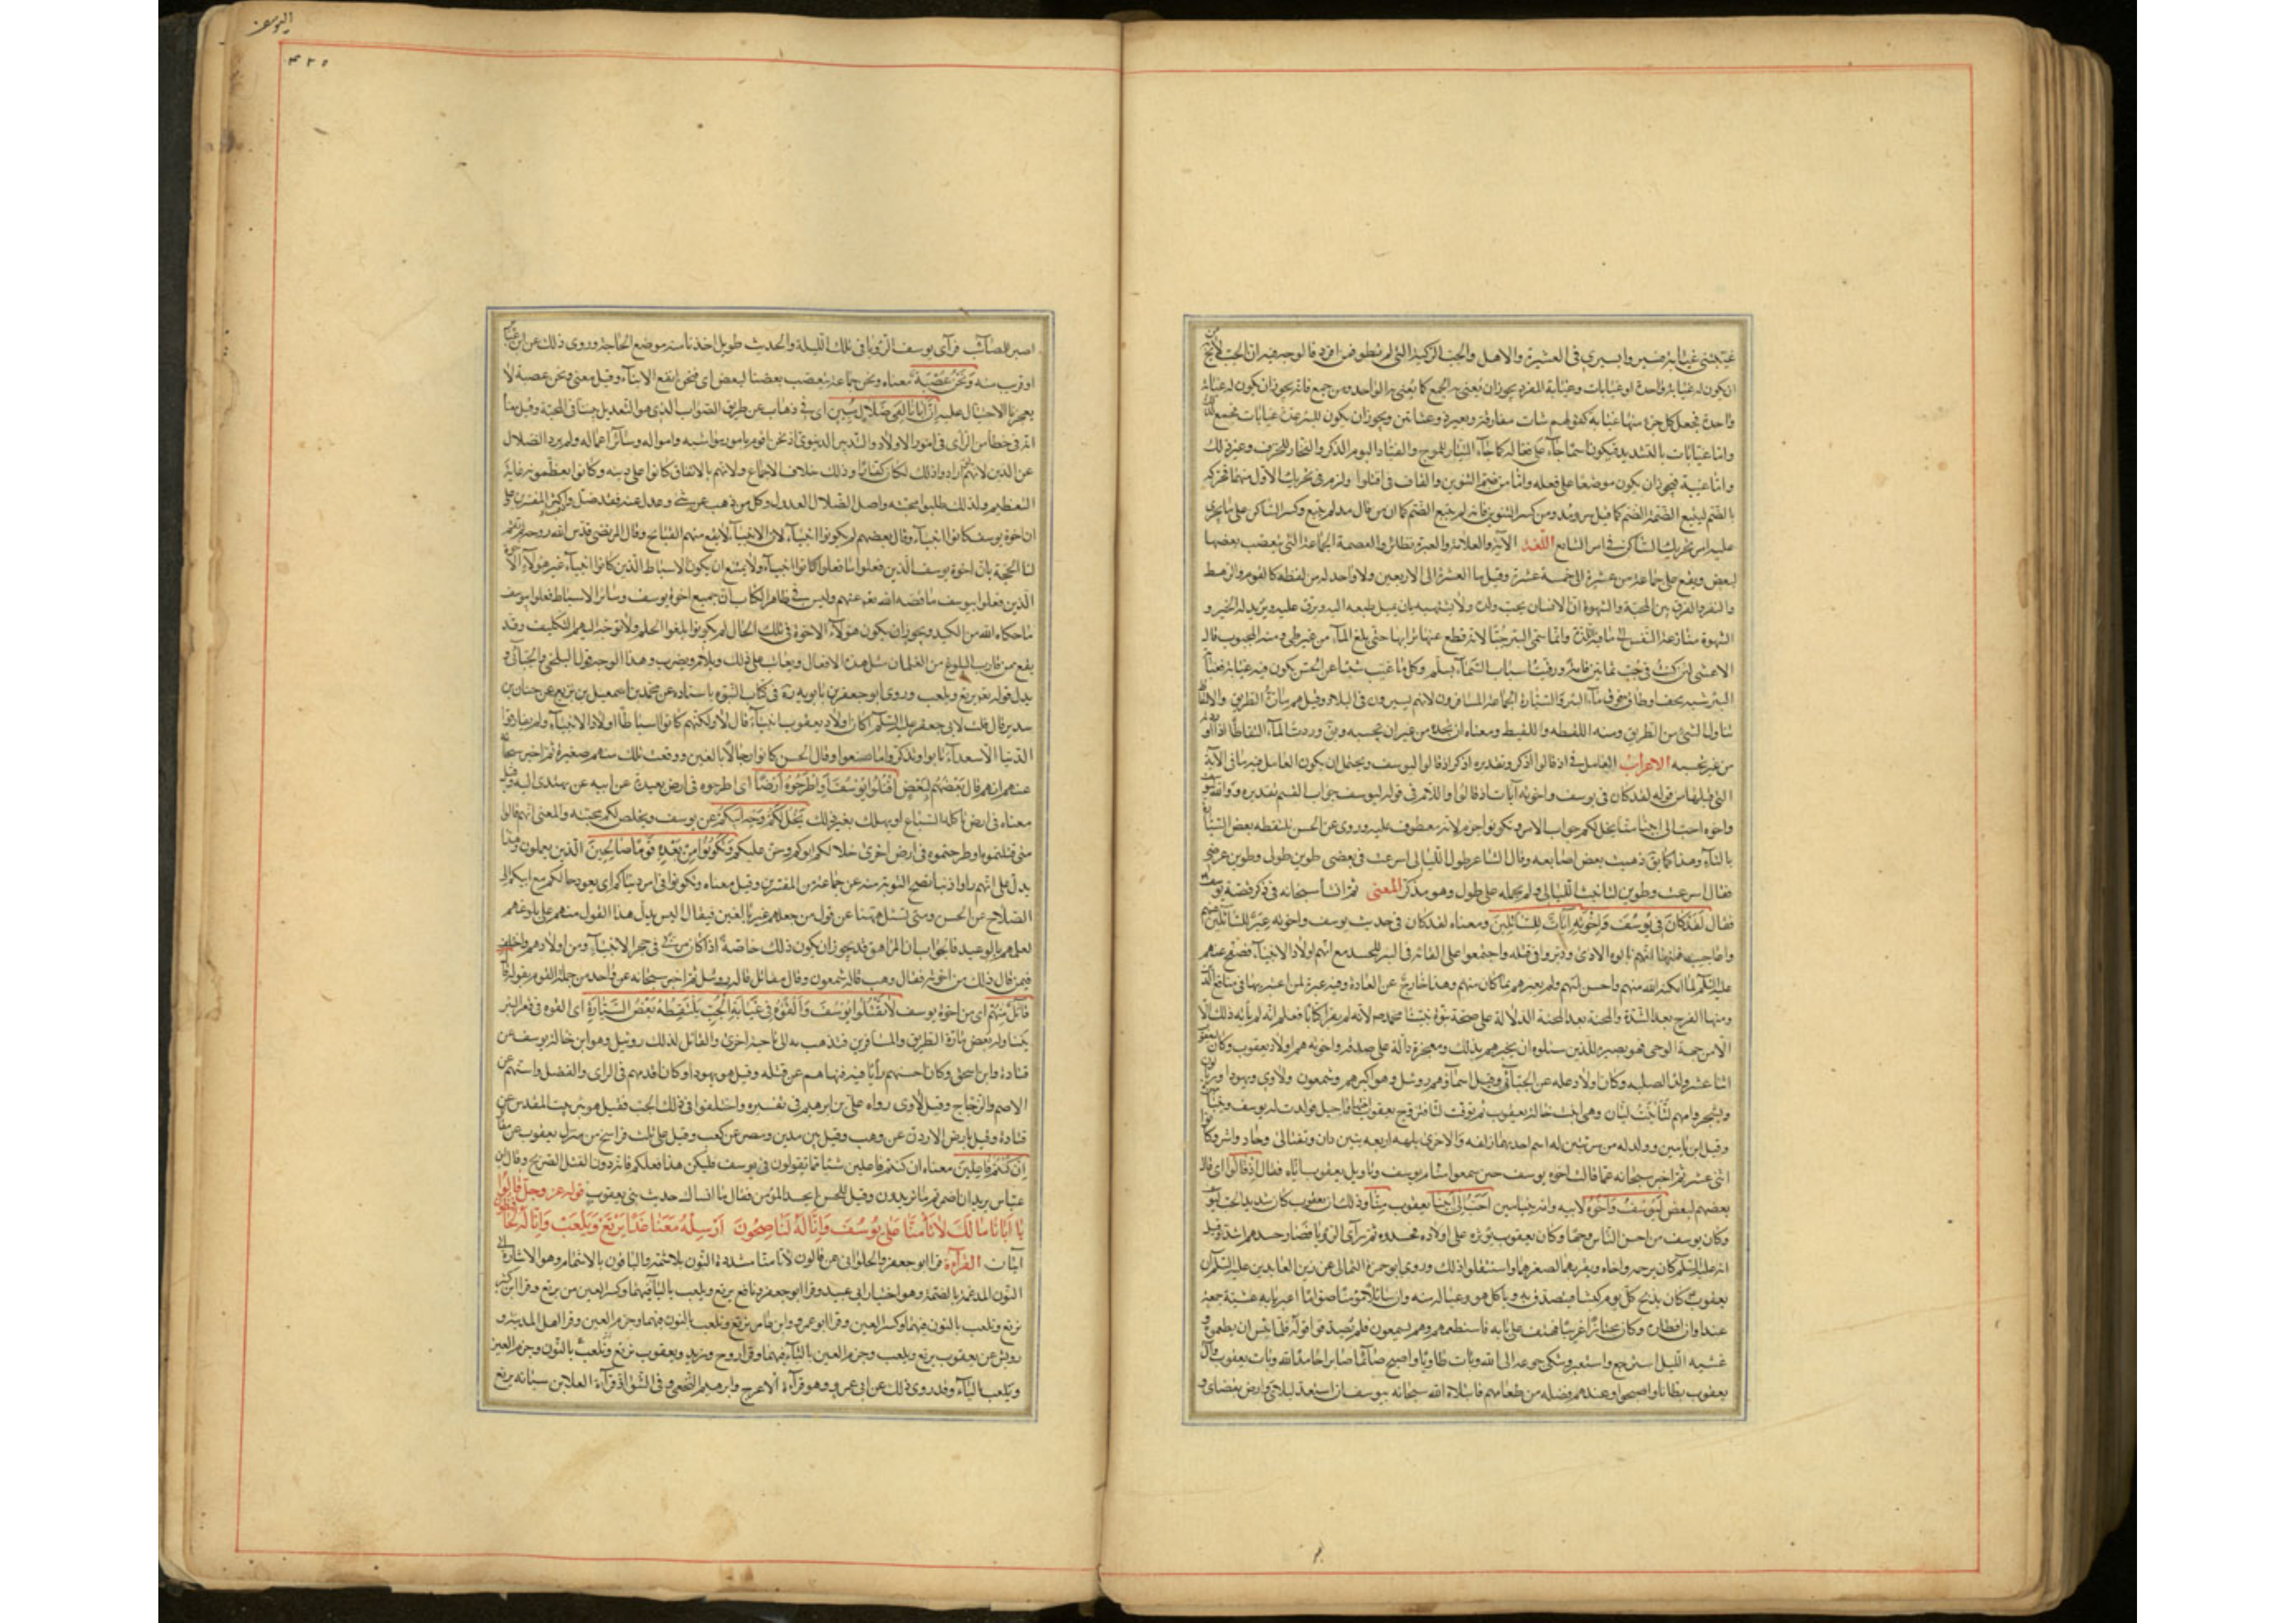 غيبتني غيابتي فسيروا بسيري في العشيرة والاهل والجب الركية التي لم تطو فمن افرد قال وجهه ان الجب لا يخ من
ان يكون له غيابة واحدة او غيابات وغيابة المفرد يجوز ان يعني به الجمع كما يعني به الواحد ومن جمع فانه يجوز ان يكون له غيابة
واحدة فجعل كل جزء منها غيابة كقولهم شابت مفارقه وبعير ذو عثانين ويجوز ان يكون للبئر عدة غيابات فجمع لذلك
واما غيابات بالتشديد فيكون اسما جاء على فعالة كما جاء التيار للموج والفياد لليوم الذكر والفخار للخزف وغير ذلك
واما غيبة فيجوز ان يكون موضعا على فعلة واما من ضم التنوين والقاف في اقتلوا ولزم في تحريك الاول منهما فحركه
بالضم ليتبع الضمة الضم كما قيل من ومد ومن كسر التنوين فانه لم يتبع الضم كما ان من قال مد لم يتبع وكسر الساكن على ما يجري
عليه امر تحريك الساكن في امر الشايع اللغة الآية والعلامة والعبرة نظائر والعصبة الجماعة التي يتعصب بعضها
لبعض ويقع على جماعة من عشرة الى خمسة عشرة وقيل ما العشرة الى الاربعين ولا واحد له من لفظه كالقوم والرهط
والنفر والفرق بين المحبة والشهوة ان الانسان يحب ولده ولا يشتهيه بان يميل طبعه اليه ويرق عليه ويريد له الخير و
الشهوة منازعة النفس الى ما فيه اللذة وانما سمي البئر جبا لانه قطع عنها ترابها حتى بلغ الماء من غير طي ومنه المجبوب قال
الاعشى لئن كنت في جب ثمانين قامة ورقيت اسباب السماء بسلم وكل ما غيب شيئا عن الحس يكون فيه غيابة فغيابة
البئر شبه لجف او طاق فوق ماء البئر والسيارة الجماعة المسافرون لانهم يسيرون في البلاد وقيل هم مارة الطريق والالتقاط
تناول الشئ من الطريق ومنه اللقطه واللقيط ومعناه ان يجده من غير ان يحسبه ومنه وردت الماء التقاطا اذا لم
من غير تحسبه الاعراب العامل في اذ قالوا اذكر وتقديره اذكر اذ قالوا ليوسف ويحتمل ان يكون العامل فيه ما في الآية
التي قبلها من قوله لقد كان في يوسف واخوته آيات اذ قالوا واللام في قوله ليوسف جواب القسم تقديره والله ليوسف
واخوه احب الى ابينا منا يخل لكم جواب الامر وتكونوا جزم لانه معطوف عليه وروي عن الحسن تلتقطه بعض السيارة
بالتاء وهذا كما يق ذهبت بعض اصابعه وقال الشاعر طول الليالي اسرعت في نقضي طوين طولي وطوين عرضي
فقال اسرعت وطوين لتانيث الليالي ولم يحمله على طول وهو مذكر المعنى ثم انشأ سبحانه في ذكر قصة يوسف
فقال لقد كان في يوسف واخوته آيات للسائلين ومعناه لقد كان في حديث يوسف واخوته عبر للسائلين عنهم
واعاجيب فمنها انهم نالوه الاذى ودبروا في قتله واجتمعوا على القائه في البئر للحسد مع انهم اولاد الانبياء فصفح عنهم
عليه السلم لما امكنه الله منهم واحسن اليهم ولم يعيرهم بما كان منهم وهذا خارج عن العادة وفيه عبرة لمن اعتبر بها في منافع الدين
ومنها الفرج بعد الشدة والمحنة بعد المحنة الدلالة على صحة نبوة نبينا محمد ص لانه لم يقرأ كتابا فعلم انه لم يأته ذلك الا
الا من جهة الوحي فهو بصيرة للذين سئلوه ان يخبرهم بذلك ومعجزة دالة على صدقه واخوته هم اولاد يعقوب وكان ليعقوب
اثنا عشر ولدا لصلبه وكان اولاد علة عن الجبائي وقيل اسماؤهم روبيل وهو اكبرهم وشمعون ولاوي ويهودا وريالون
ويشجر وامهم ليا بنت لبان وهي ابنة خالة يعقوب ثم توفت ليا فتزوج يعقوب اختها راحيل فولدت له يوسف وبنيامين
وقيل ابن يامين وولد له من سريتين له اسم احديهما زلفه والاخرى بلهه اربعة بنين دان ونفتالى وحاد واشر وكانوا
اثنى عشر ثم اخبر سبحانه عما قالت اخوة يوسف حين سمعوا منام يوسف وتاويل يعقوب اياه فقال اذ قالوا اي قال
بعضهم لبعض ليوسف واخوه لابيه وامه بنيامين احب الى ابينا يعقوب منا وذلك ان يعقوب كان شديد الحب ليوسف
وكان يوسف من احسن الناس وجها وكان يعقوب يؤثره على اولاده فحسدوه ثم رأى الرؤيا فصار حسدهم اشد وقيل
انه عليه السلم كان يرحمه واخاه ويقربهما لصغرهما واستثقلوا ذلك وروى ابو حمزة الثمالي عن زين العابدين عليه السلم ان
يعقوب كان يذبح كل يوم كبشا فيتصدق به وياكل هو وعياله منه وان سائلا مؤمنا صواما اعتر ببابه عشية جمعة
عند اوان افطاره وكان مجتازا غريبا فهتف على بابه فاستطعمهم وهم يسمعون فلم يصدقوا قوله فلما ايس ان يطعموه
غشيه الليل استرجع واستعبر وشكى جوعه الى الله وبات طاويا واصبح صائما صابرا حامدا لله وبات يعقوب وآل
يعقوب بطانا واصبحوا وعندهم فضلة من طعامهم فابتلاه الله سبحانه بيوسف ان استعد لبلائي وارض بقضاي و
اليوسف
٤٢٥
اصبر للمصائب فرآى يوسف الرؤيا في تلك الليلة والحديث طويل اخذنا منه موضع الحاجة وروى ذلك عن ابن عباس
او قريب منه ونحن عصبة معناه ونحن جماعة يتعصب بعضنا لبعض اي فنحن انفع الابناء وقيل معنى ونحن عصبة لا
يعجزنا الاحتيال عليه ان ابانا لفي ضلال مبين اي في ذهاب عن طريق الصواب الذي هو التعديل بيننا في المحبة وقيل معناه
انه في خطأ من الراى في امور الاولاد والتدبير الدنيوي اذ نحن اقوم بامور مواشيه وامواله وسائر اعماله ولم يرد الضلال
عن الدين لانهم لو ارادوا ذلك لكانوا كفارا وذلك خلاف الاجماع ولانهم بالاتفاق كانوا على دينه وكانوا يعظمونه غاية
التعظيم ولذلك طلبوا محبته واصل الضلال العدول وكل من ذهب عن شيء وعدل عنه فقد ضل واكثر المفسرين على
ان اخوة يوسف كانوا انبياء وقال بعضهم لم يكونوا انبياء لان الانبياء لا يقع منهم القبائح وقال المرتضى قدس الله روحه لم يقم
لنا الحجة بان اخوة يوسف الذين فعلوا ما فعلوا كانوا انبياء ولا يمتنع ان يكون الاسباط الذين كانوا انبياء غير هؤلاء الاخوة
الذين فعلوا بيوسف ما قصه الله تعالى عنهم وليس في ظاهر الكتاب ان جميع اخوة يوسف وسائر الاسباط فعلوا بيوسف
ما حكاه الله من الكيد ويجوز ان يكون هؤلاء الاخوة في تلك الحال لم يكونوا بلغوا الحلم ولا توجه اليهم التكليف وقد
يقع ممن قارب البلوغ من الغلمان مثل هذه الافعال ويعاتب على ذلك ويلام ويضرب وهذا الوجه قول البلخي والجبائي و
يدل قوله نرتع ونلعب وروى ابو جعفر بن بابويه ره في كتاب النبوة باسناده عن محمد بن اسمعيل بن بزيع عن حنان بن
سدير قال قلت لابي جعفر عليه السلم اكان اولاد يعقوب انبياء قال لا ولكنهم كانوا اسباطا اولاد الانبياء ولم يفارقوا
الدنيا الا سعداء تابوا وتذكروا ما صنعوا وقال الحسن كانوا رجالا بالغين ووقعت ذلك منهم صغيرة ثم اخبر سبحانه
عنهم انهم قال بعضهم لبعض اقتلوا يوسف او اطرحوه ارضا اي اطرحوه في ارض بعيدة عن ابيه عن يهتدى اليه وقيل
معناه في ارض تاكله السباع او يهلك بغير ذلك يخل لكم وجه ابيكم عن يوسف ويخلص لكم محبته والمعنى انهم قالوا
متى قتلتموه او طرحتموه في ارض اخرى خلا لكم ابوكم وحن عليكم وتكونوا من بعده قوما صالحين الذين يعملون وهذا
يدل على انهم راوا ذنبا تصح التوبة منه عن جماعة من المفسرين وقيل معناه وتكونوا في امر دنياكم اي يعود حالكم مع ابيكم الى
الصلاح عن الحسن ومتى تسئل هيهنا عن قول من جعلهم غير بالغين فيقال اليس يدل هذا القول منهم على بلوغهم
لعلمهم بالوعيد فالجواب ان المراهق قد يجوز ان يكون ذلك خاصة اذا كان مربى في حجر الانبياء ومن اولادهم واختلف
فيمن قال ذلك من اخوته فقال وهب قاله شمعون وقال مقاتل قاله روبيل ثم اخبر سبحانه عن واحد من جملة القوم بقوله قال
قائل منهم اي من اخوة يوسف لا تقتلوا يوسف والقوه في غيابة الجب يلتقطه بعض السيارة اي القوه في قعر البئر
يتناوله بعض مارة الطريق والمسافرين فتذهب به الى ناحية اخرى والقائل لذلك روبيل وهو ابن خالة يوسف عن
قتادة وابن اسحق وكان احسنهم رأيا فيه فنهاهم عن قتله وقيل هو يهودا وكان اقدمهم في الراى والفضل واسنهم عن
الاصم والزجاج وقيل لاوى رواه علي بن ابرهيم في تفسيره واختلفوا في ذلك الجب فقيل هو بئر بيت المقدس عن
قتادة وقيل بارض الاردن عن وهب وقيل بين مدين ومصر عن كعب وقيل على ثلث فراسخ من منزل يعقوب عن مقاتل
ان كنتم فاعلين معناه ان كنتم فاعلين شيئا مما تقولون في يوسف فليكن هذا فعلكم فانه دون القتل الصريح وقال ابن
عباس يريد ان اضمرتم ما تريدون وقيل للحسن ايحسد المؤمن فقال ما انساك حديث بني يعقوب قوله عز وجل قالوا
يا ابانا ما لك لا تأمنا على يوسف وانا له لناصحون ارسله معنا غدا يرتع ويلعب وانا له لحافظون
آيتان القراءة قرا ابو جعفر والحلواني عن قالون لا تامنا مشددة النون بلا شمة والباقون بالاشمام وهو الاشارة الى
النون المدغمة بالضمة وهو اختيار ابي عبيد وقرا ابو جعفر ونافع يرتع ويلعب بالياء فيهما وكسر العين من يرتع وقرا ابن كثير
نرتع ونلعب بالنون فيهما وكسر العين وقرا ابو عمرو وابن عامر نرتع ونلعب بالنون فيهما وجزم العين وقرا اهل المدينة و
رويس عن يعقوب يرتع ويلعب وجزم العين بالياء فيهما وقرا روح وزيد ويعقوب نرتع ويلعب بالنون وجزم العين
ويلعب بالياء وقد روى ذلك عن ابي عمرو وهو قراءة الاعرج وابرهيم النخعي وفي الشواذ قراءة العلا بن سيابه يرتع